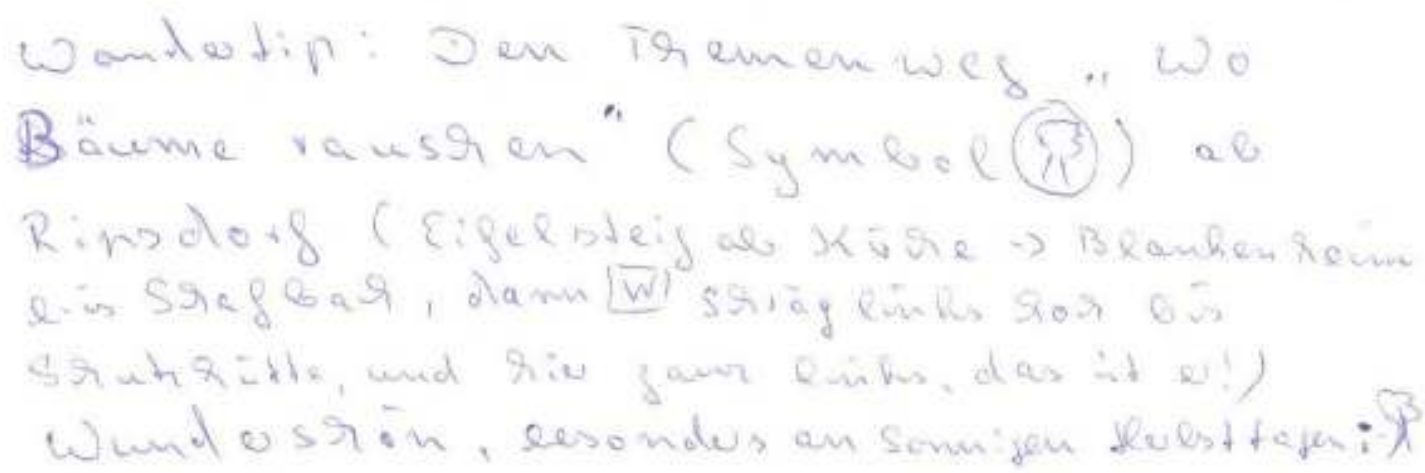 Wandertip: Den Themenweg „Wo
Bäume rauschen" (Symbol) ab
Ripsdorf (Eifelsteig ab Kirche -> Blankenheim
bis Schafbach, dann W schräg links hoch bis
Schutzhütte, und hier ganz links, das ist er!)
Wunderschön, besonders an sonnigen Herbsttagen: